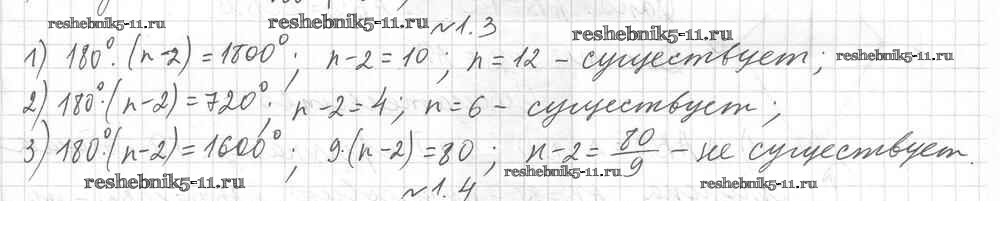 reshebnik5-11.ru reshebnik5-11.ru №1.3 reshebnik5-11.ru
1) 180°·(n-2)=1800°; n-2=10; n=12 - существует; reshebnik5-11.ru
2) 180°·(n-2)=720°; n-2=4; n=6 - существует;
3) 180°·(n-2)=1600°; 9·(n-2)=80; n-2=80/9 - не существует.
reshebnik5-11.ru №1.4 reshebnik5-11.ru reshebnik5-11.ru